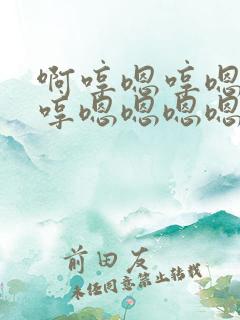 啊哼嗯哼嗯
哼嗯嗯嗯嗯
前田友
未经同意禁止转载